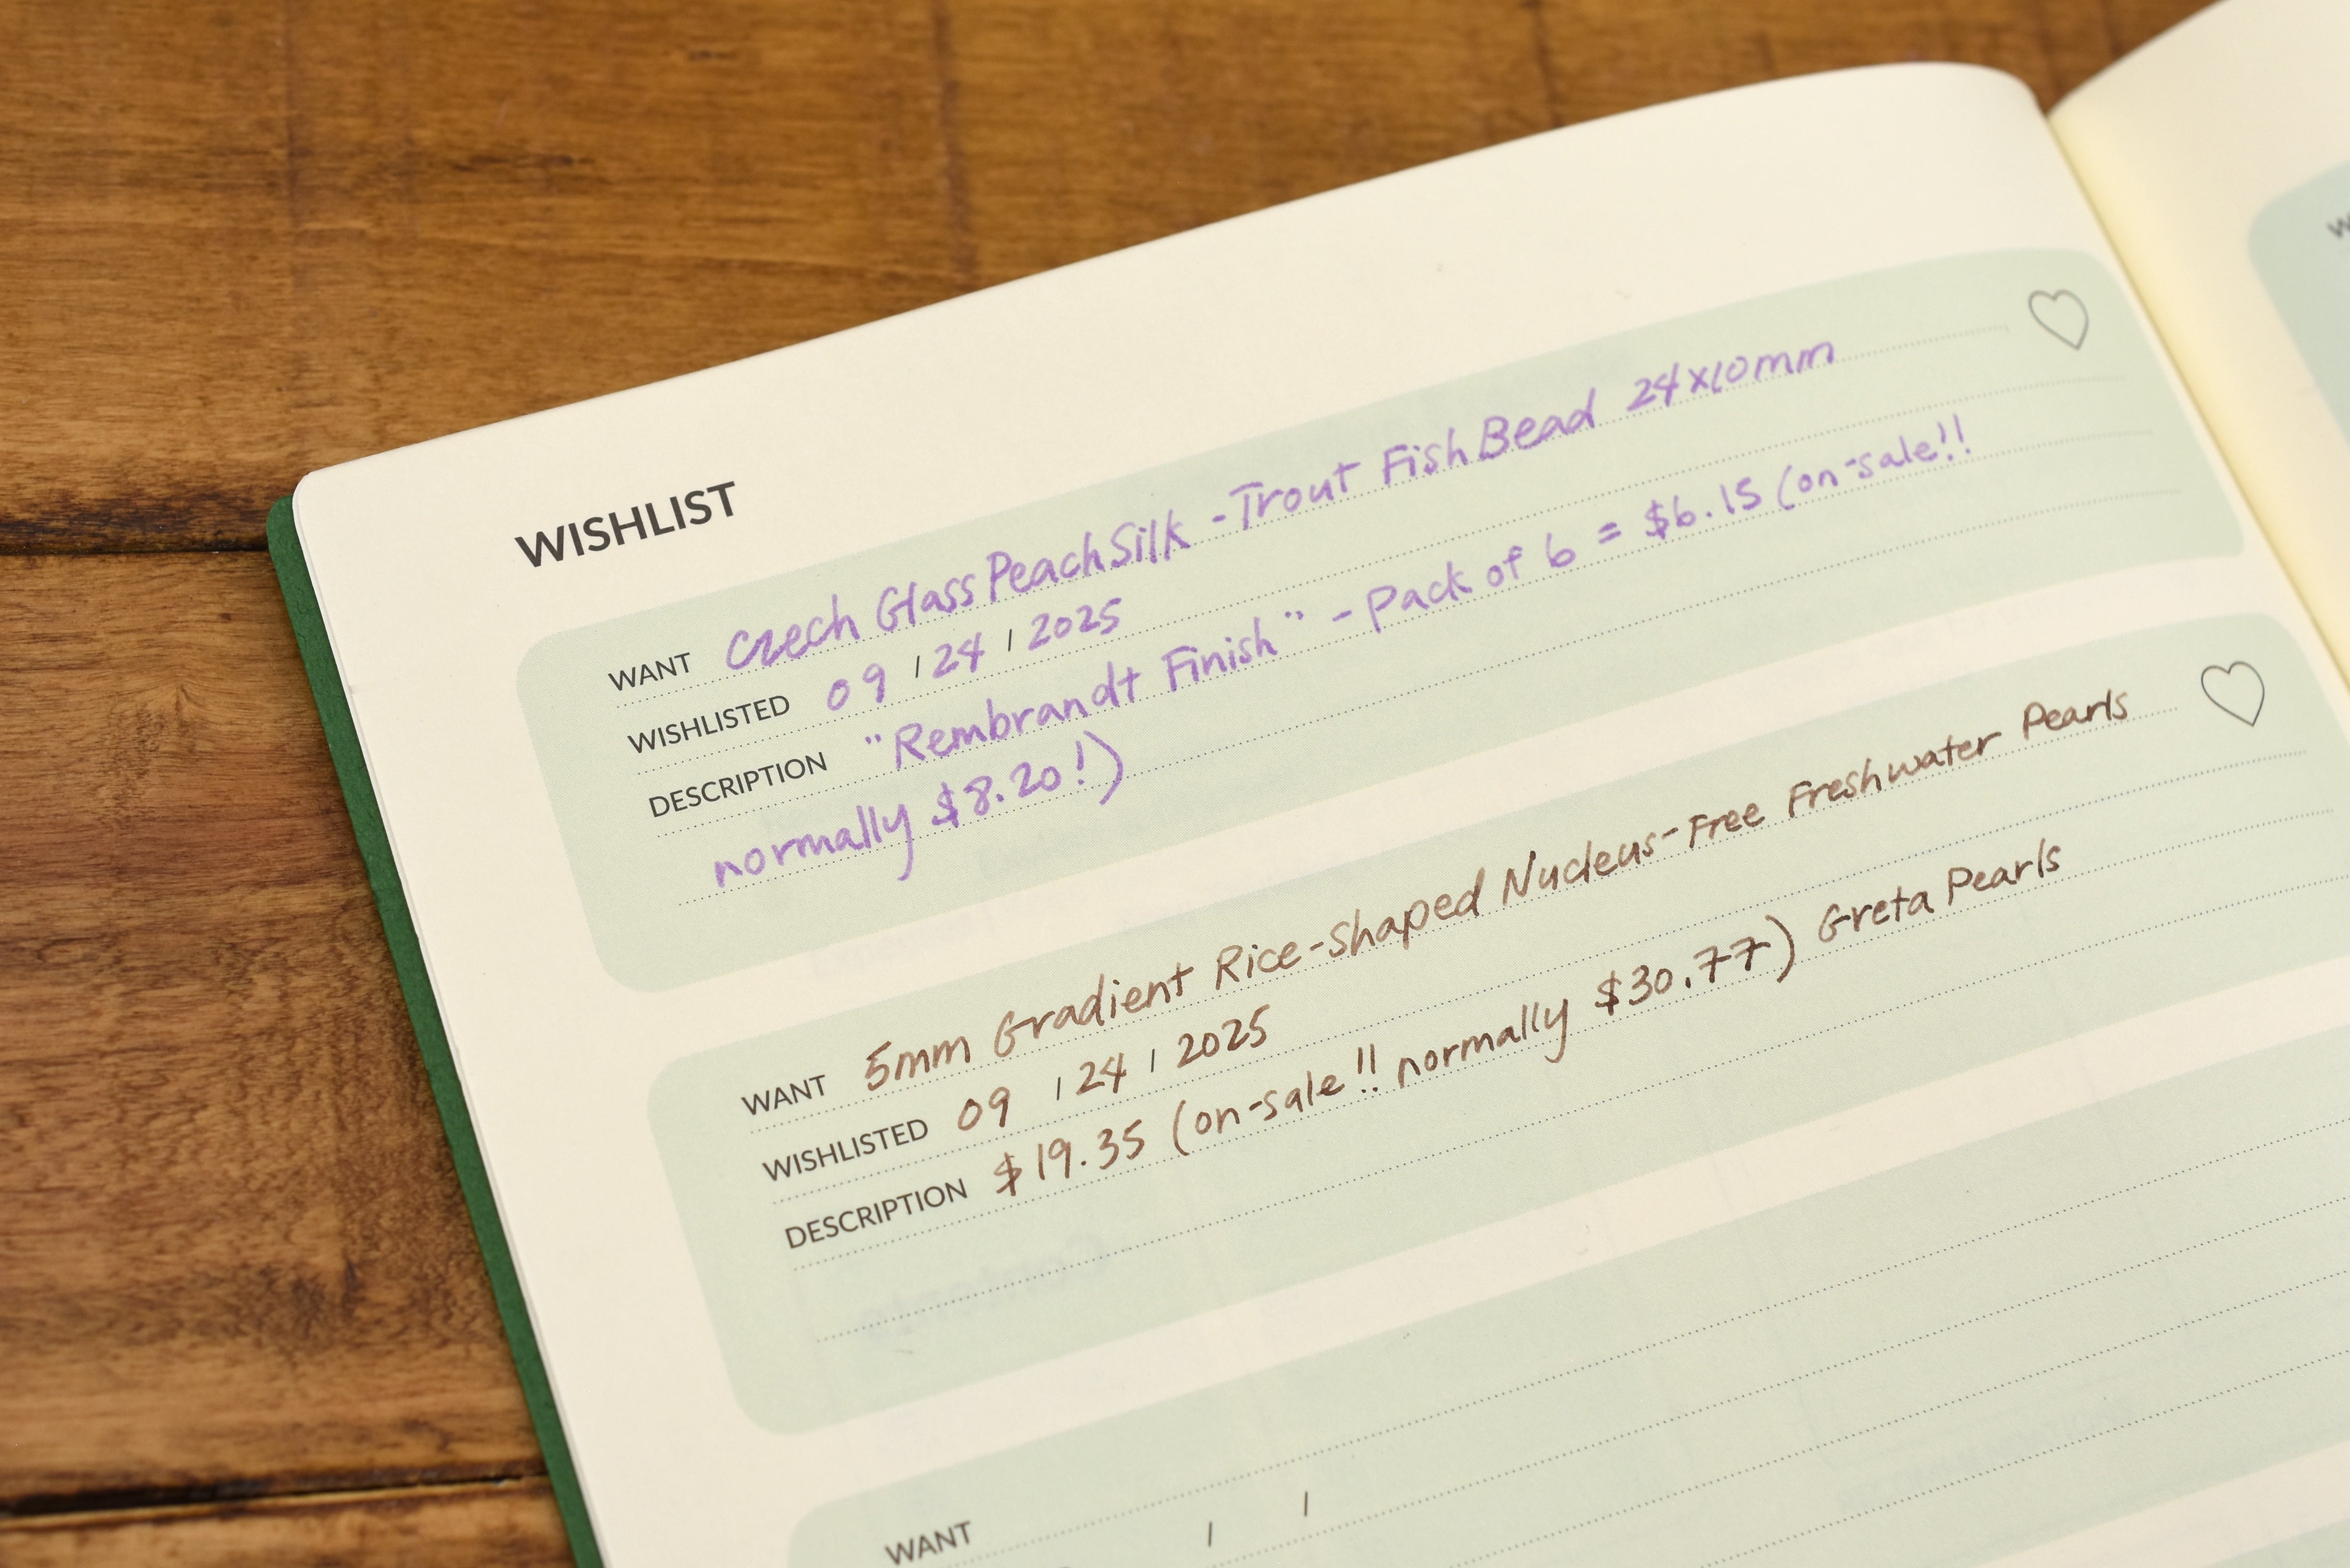 WISHLIST
WANT Czech Glass Peach Silk - Trout Fish Bead 24x10mm
WISHLISTED 09 / 24 / 2025
DESCRIPTION "Rembrandt Finish" - Pack of 6 = $6.15 (on-sale!!
normally $8.20!)
WANT 5mm Gradient Rice-shaped Nucleus-Free Freshwater Pearls
WISHLISTED 09 / 24 / 2025
DESCRIPTION $19.35 (on-sale!! normally $30.77) Greta Pearls
WANT
/ /